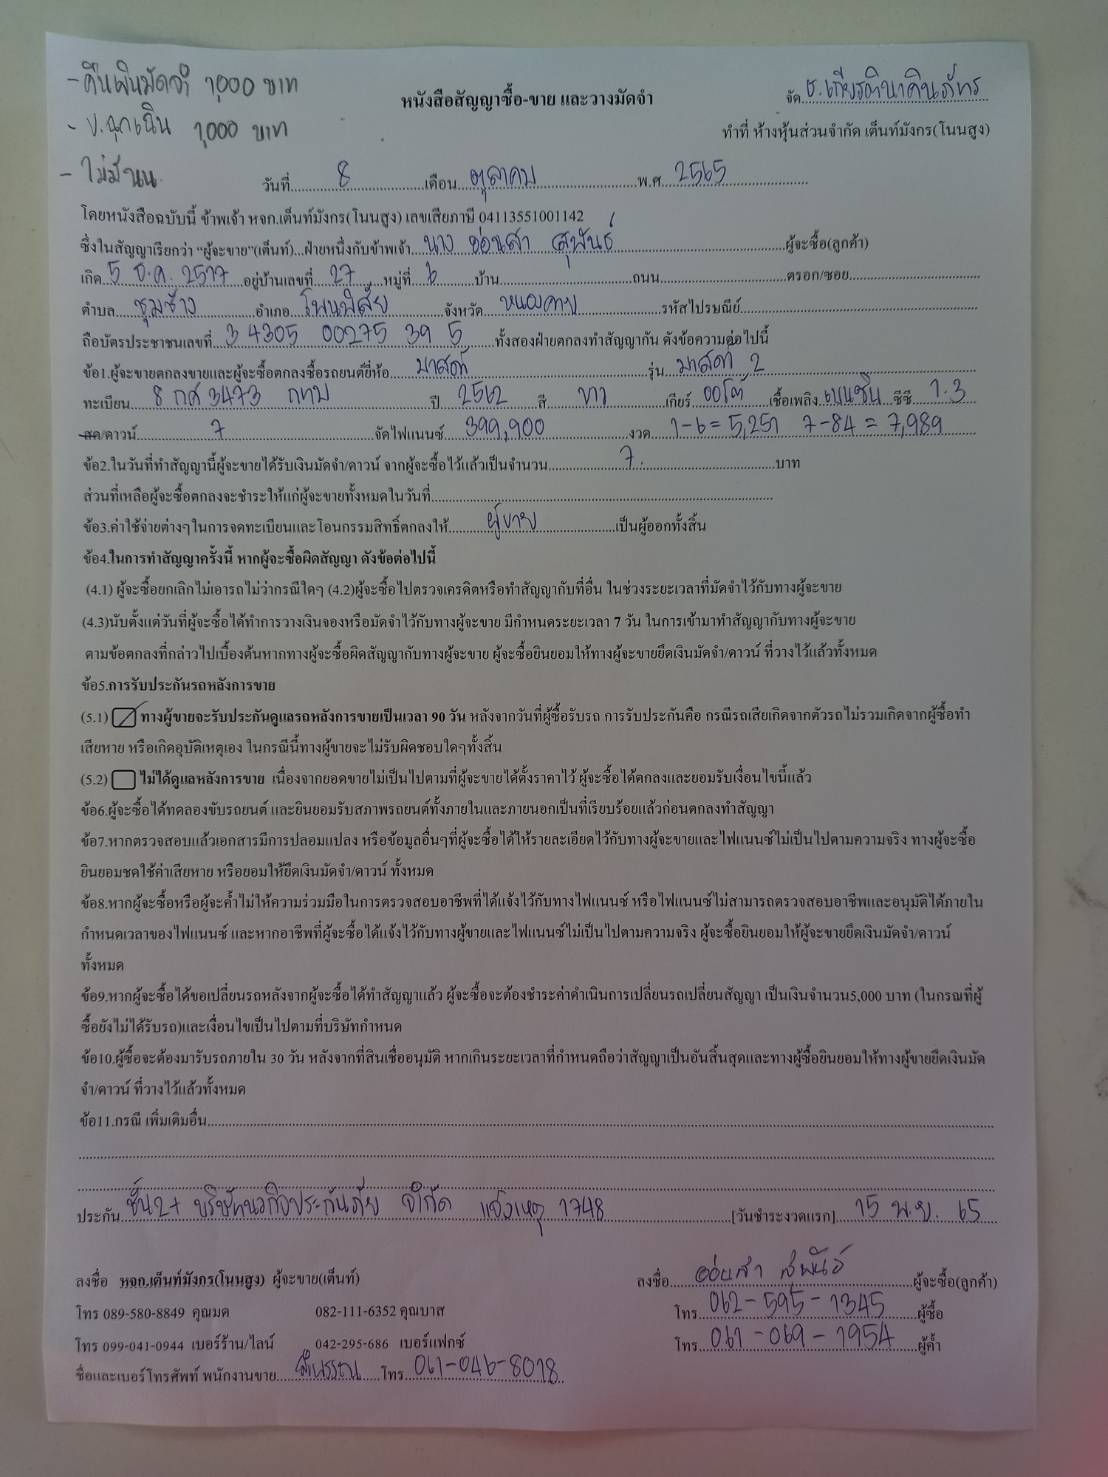 - คืนเงินมัดจำ 1,000 บาท
หนังสือสัญญาซื้อ-ขาย และวางมัดจำ
จัด ธ.เกียรตินาคินภัทร
- ป.ฉุกเฉิน 1,000 บาท
ทำที่ ห้างหุ้นส่วนจำกัด เต็นท์มังกร(โนนสูง)
- ไม่มี
วันที่ 8 เดือน ตุลาคม พ.ศ 2565
โดยหนังสือฉบับนี้ ข้าพเจ้า หจก.เต็นท์มังกร(โนนสูง) เลขเสียภาษี 04113551001142
ซึ่งในสัญญาเรียกว่า "ผู้จะขาย"(เต็นท์)...ฝ่ายหนึ่งกับข้าพเจ้า นาง อ่อนสา สุพันธ์ ผู้จะซื้อ(ลูกค้า)
เกิด 5 ธ.ค. 2517 อยู่บ้านเลขที่ 27 หมู่ที่ 6 บ้าน ถนน ตรอก/ซอย
ตำบล ชุมช้าง อำเภอ โพนพิสัย จังหวัด หนองคาย รหัสไปรษณีย์
ถือบัตรประชาชนเลขที่ 3 4305 00275 39 5 ทั้งสองฝ่ายตกลงทำสัญญากัน ดังข้อความต่อไปนี้
ข้อ1.ผู้จะขายตกลงขายและผู้จะซื้อตกลงซื้อรถยนต์ยี่ห้อ มาสด้า รุ่น มาสด้า 2
ทะเบียน 8 กศ 3473 กทม ปี 2562 สี ขาว เกียร์ ออโต้ เชื้อเพลิง เบนซิน ซีซี 1.3
สด/ดาวน์ 7 จัดไฟแนนซ์ 399,900 งวด 1-6 = 5,251 7-84 = 7,989
ข้อ2.ในวันที่ทำสัญญานี้ผู้จะขายได้รับเงินมัดจำ/ดาวน์ จากผู้จะซื้อไว้แล้วเป็นจำนวน 7. บาท
ส่วนที่เหลือผู้จะซื้อตกลงจะชำระให้แก่ผู้จะขายทั้งหมดในวันที่
ข้อ3.ค่าใช้จ่ายต่างๆในการจดทะเบียนและโอนกรรมสิทธิ์ตกลงให้ ผู้ขาย เป็นผู้ออกทั้งสิ้น
ข้อ4.ในการทำสัญญาครั้งนี้ หากผู้จะซื้อผิดสัญญา ดังข้อต่อไปนี้
(4.1) ผู้จะซื้อยกเลิกไม่เอารถไม่ว่ากรณีใดๆ (4.2)ผู้จะซื้อไปตรวจเครดิตหรือทำสัญญากับที่อื่น ในช่วงระยะเวลาที่มัดจำไว้กับทางผู้จะขาย
(4.3)นับตั้งแต่วันที่ผู้จะซื้อได้ทำการวางเงินจองหรือมัดจำไว้กับทางผู้จะขาย มีกำหนดระยะเวลา 7 วัน ในการเข้ามาทำสัญญากับทางผู้จะขาย
ตามข้อตกลงที่กล่าวไปเบื้องต้นหากทางผู้จะซื้อผิดสัญญากับทางผู้จะขาย ผู้จะซื้อยินยอมให้ทางผู้จะขายยึดเงินมัดจำ/ดาวน์ ที่วางไว้แล้วทั้งหมด
ข้อ5.การรับประกันรถหลังการขาย
(5.1) ทางผู้ขายจะรับประกันดูแลรถหลังการขายเป็นเวลา 90 วัน หลังจากวันที่ผู้ซื้อรับรถ การรับประกันคือ กรณีรถเสียเกิดจากตัวรถ ไม่รวมเกิดจากผู้ซื้อทำ
เสียหาย หรือเกิดอุบัติเหตุเอง ในกรณีนี้ทางผู้ขายจะไม่รับผิดชอบใดๆทั้งสิ้น
(5.2) ไม่ได้ดูแลหลังการขาย เนื่องจากยอดขายไม่เป็นไปตามที่ผู้จะขายได้ตั้งราคาไว้ ผู้จะซื้อได้ตกลงและยอมรับเงื่อนไขนี้แล้ว
ข้อ6.ผู้จะซื้อได้ทดลองขับรถยนต์ และยินยอมรับสภาพรถยนต์ทั้งภายในและภายนอกเป็นที่เรียบร้อยแล้วก่อนตกลงทำสัญญา
ข้อ7.หากตรวจสอบแล้วเอกสารมีการปลอมแปลง หรือข้อมูลอื่นๆที่ผู้จะซื้อได้ให้รายละเอียดไว้กับทางผู้จะขายและไฟแนนซ์ไม่เป็นไปตามความจริง ทางผู้จะซื้อ
ยินยอมชดใช้ค่าเสียหาย หรือยอมให้ยึดเงินมัดจำ/ดาวน์ ทั้งหมด
ข้อ8.หากผู้จะซื้อหรือผู้จะค้ำไม่ให้ความร่วมมือในการตรวจสอบอาชีพที่ได้แจ้งไว้กับทางไฟแนนซ์ หรือไฟแนนซ์ไม่สามารถตรวจสอบอาชีพและอนุมัติได้ภายใน
กำหนดเวลาของไฟแนนซ์ และหากอาชีพที่ผู้จะซื้อได้แจ้งไว้กับทางผู้ขายและไฟแนนซ์ไม่เป็นไปตามความจริง ผู้จะซื้อยินยอมให้ผู้จะขายยึดเงินมัดจำ/ดาวน์
ทั้งหมด
ข้อ9.หากผู้จะซื้อได้ขอเปลี่ยนรถหลังจากผู้จะซื้อได้ทำสัญญาแล้ว ผู้จะซื้อจะต้องชำระค่าดำเนินการเปลี่ยนรถเปลี่ยนสัญญา เป็นเงินจำนวน5,000 บาท (ในกรณีที่ผู้
ซื้อยังไม่ได้รับรถ)และเงื่อนไขเป็นไปตามที่บริษัทกำหนด
ข้อ10.ผู้ซื้อจะต้องมารับรถภายใน 30 วัน หลังจากที่สินเชื่ออนุมัติ หากเกินระยะเวลาที่กำหนดถือว่าสัญญาเป็นอันสิ้นสุดและทางผู้ซื้อยินยอมให้ทางผู้ขายยึดเงินมัด
จำ/ดาวน์ ที่วางไว้แล้วทั้งหมด
ข้อ11.กรณี เพิ่มเติมอื่น
ประกัน ชั้น2+ บริษัทนวกิจประกันภัย จำกัด แจ้งเหตุ 1748 [วันชำระงวดแรก] 15 พ.ย. 65
ลงชื่อ หจก.เต็นท์มังกร(โนนสูง) ผู้จะขาย(เต็นท์) ลงชื่อ อ่อนสา สุพันธ์ ผู้จะซื้อ(ลูกค้า)
โทร 089-580-8849 คุณมด 082-111-6352 คุณบาส โทร 062-595-1345 ผู้ซื้อ
โทร 099-041-0944 เบอร์ร้าน/ไลน์ 042-295-686 เบอร์แฟกซ์ โทร 061-069-1954 ผู้ค้ำ
ชื่อและเบอร์โทรศัพท์ พนักงานขาย โทร 061-046-8018